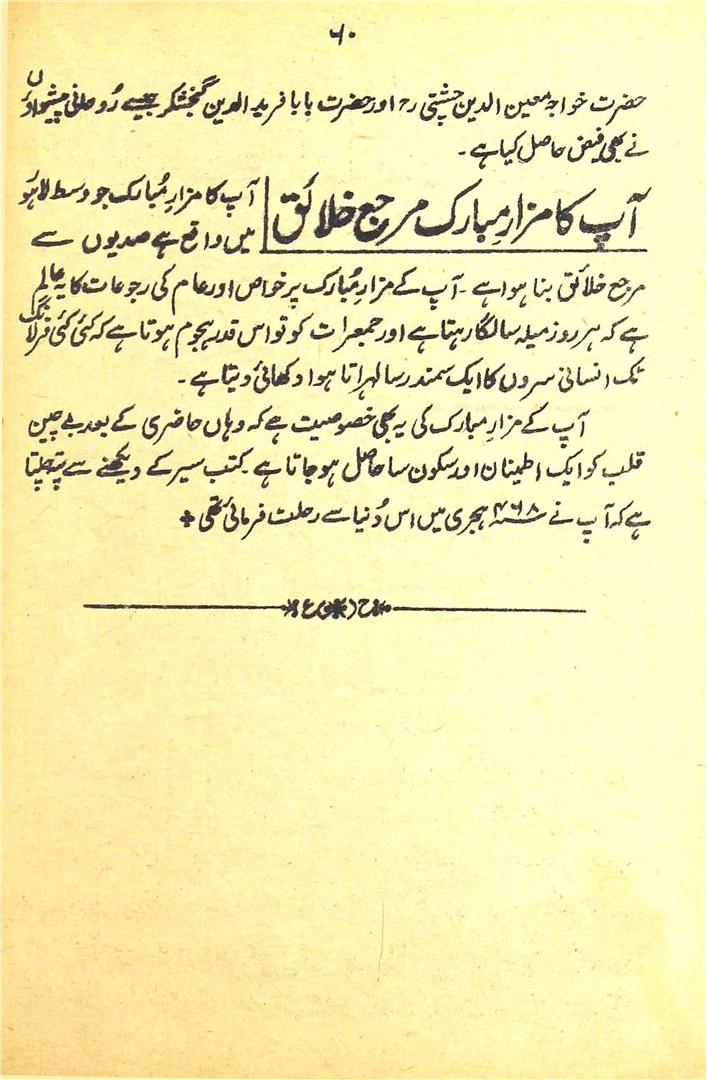 ۶۰
حضرت خواجہ معین الدین چشتی رح اور حضرت بابا فرید الدین گنجشکر جیسے رُوحانی پیشواؤں
نے بھی فیض حاصل کیا ہے۔
آپ کا مزارِ مبارک مرجع خلائق
آپ کا مزارِ مُبارک جو وسط لاہور
میں واقع ہے صدیوں سے
مرجع خلائق بنا ہوا ہے۔ آپ کے مزارِ مُبارک پر خواص اور عام کی رجوعات کا یہ عالم
ہے کہ ہر روز میلہ سا لگا رہتا ہے اور جمعرات کو تو اس قدر ہجوم ہوتا ہے کہ کئی کئی فرلانگ
تک انسانی سروں کا ایک سمندر سا لہراتا ہوا دکھائی دیتا ہے۔
آپ کے مزارِ مبارک کی یہ بھی خصوصیت ہے کہ وہاں حاضری کے بعد بے چین
قلب کو ایک اطمینان اور سکون سا حاصل ہو جاتا ہے۔ کتب سیر کے دیکھنے سے پتہ چلتا
ہے کہ آپ نے ۴۶۸؁ ہجری میں اس دُنیا سے رحلت فرمائی تھی +